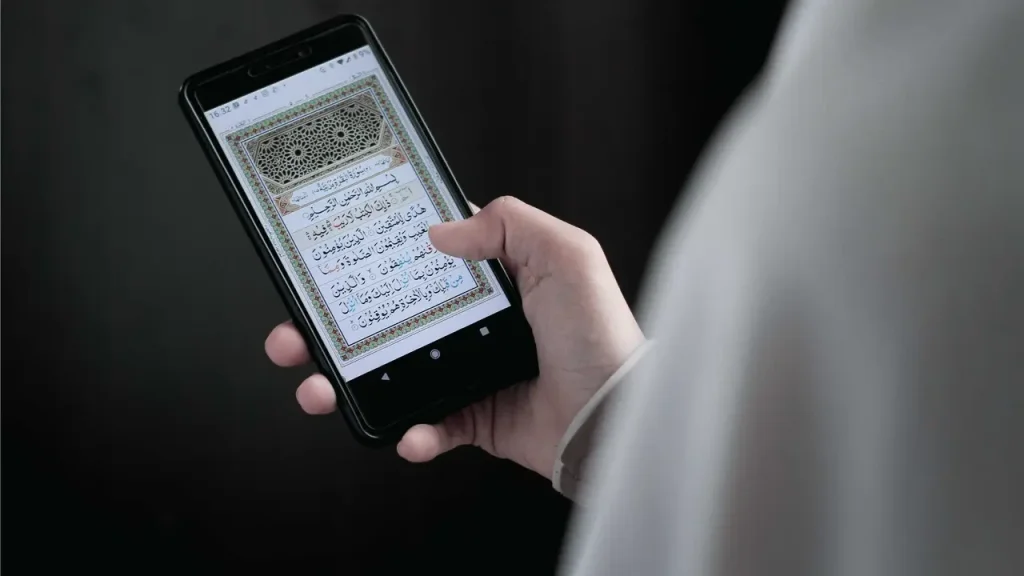 16:32
بِسْمِ اللّٰهِ الرَّحْمٰنِ الرَّحِيْمِ
ذٰلِكَ الْكِتٰبُ لَا رَيْبَ فِيْهِ
هُدًى لِّلْمُتَّقِيْنَ الَّذِيْنَ يُؤْمِنُوْنَ
بِالْغَيْبِ وَيُقِيْمُوْنَ الصَّلٰوةَ وَمِمَّا
يُنْفِقُوْنَ وَالَّذِيْنَ
يُؤْمِنُوْنَ بِمَآ اُنْزِلَ اِلَيْكَ وَمَآ اُنْزِلَ
مِنْ قَبْلِكَ وَبِالْاٰخِرَةِ هُمْ يُوْقِنُوْنَ